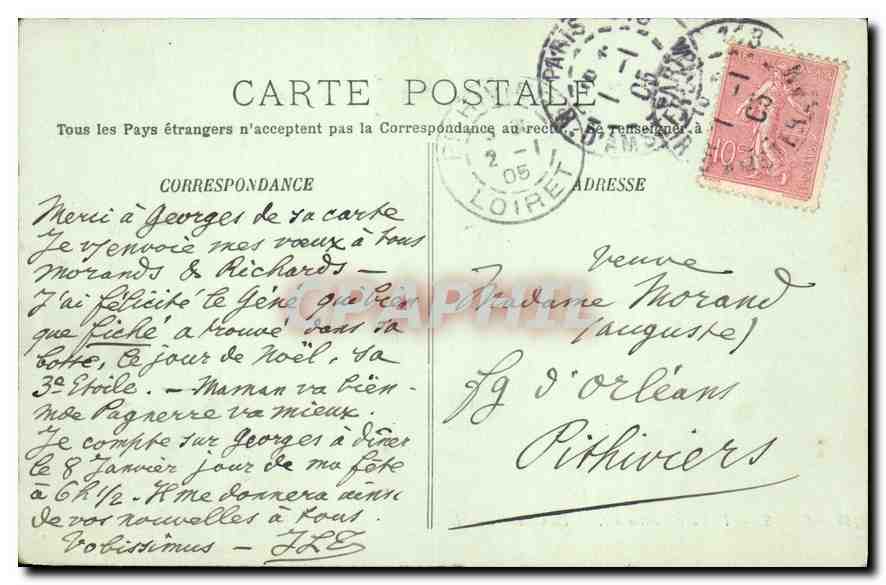 CARTE POSTALE
Tous les Pays étrangers n'acceptent pas la Correspondance au recto. - Se renseigner à
CORRESPONDANCE
Merci à Georges de sa carte
Je envoie mes vœux à tous
Morands & Richards -
J'ai félicité le Géné que bien
que fiché a trouvé dans sa
botte, le jour de Noël, sa
3e Etoile. - Maman va bien -
Mde Pagnerre va mieux.
Je compte sur Georges à dîner
le 8 Janvier jour de ma fête
à 6h 1/2 - Il me donnera ainsi
de vos nouvelles à tous.
Vobissimus -
ADRESSE
Veuve
Madame Morand
(auguste)
Fg d'Orléans
Pithiviers
2 - 1
05
LOIRET
PARIS
05
10
CPAPHIL